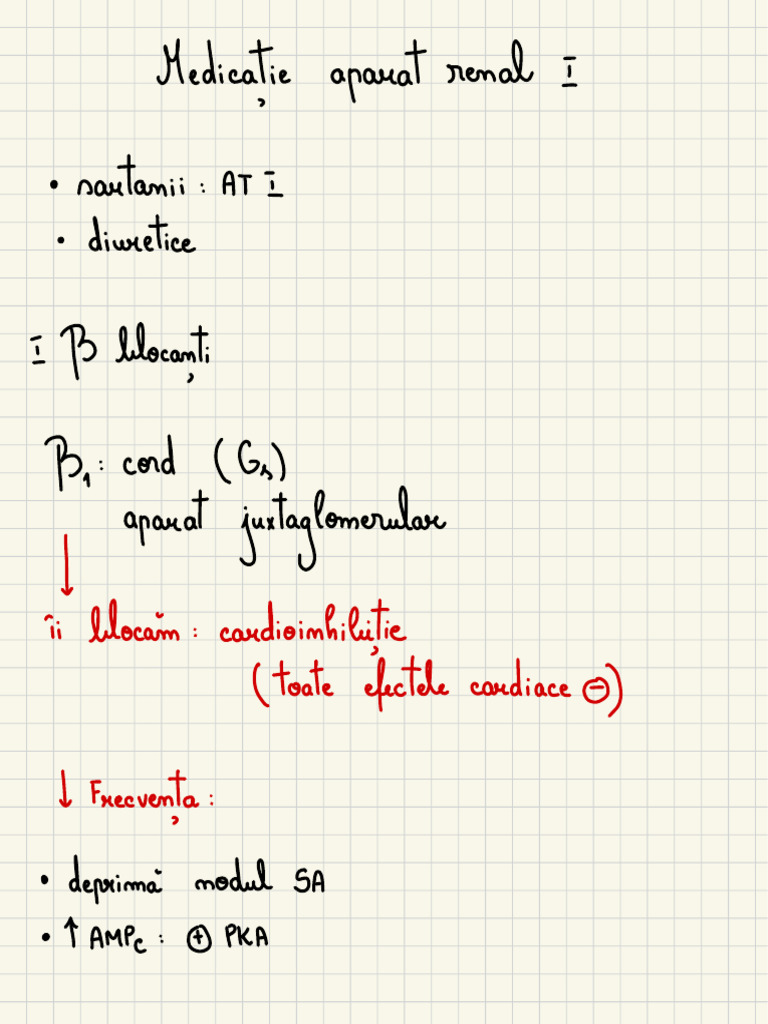 Medicație aparat renal I
• sartanii: AT I
• diuretice
I β blocanți
β₁: cord (Gs)
aparat juxtaglomerular
↓
îi blocăm: cardioinhibiție
(toate efectele cardiace ⊖)
↓ Frecvența:
• deprimă nodul SA
• ↑ AMPc: ⊕ PKA